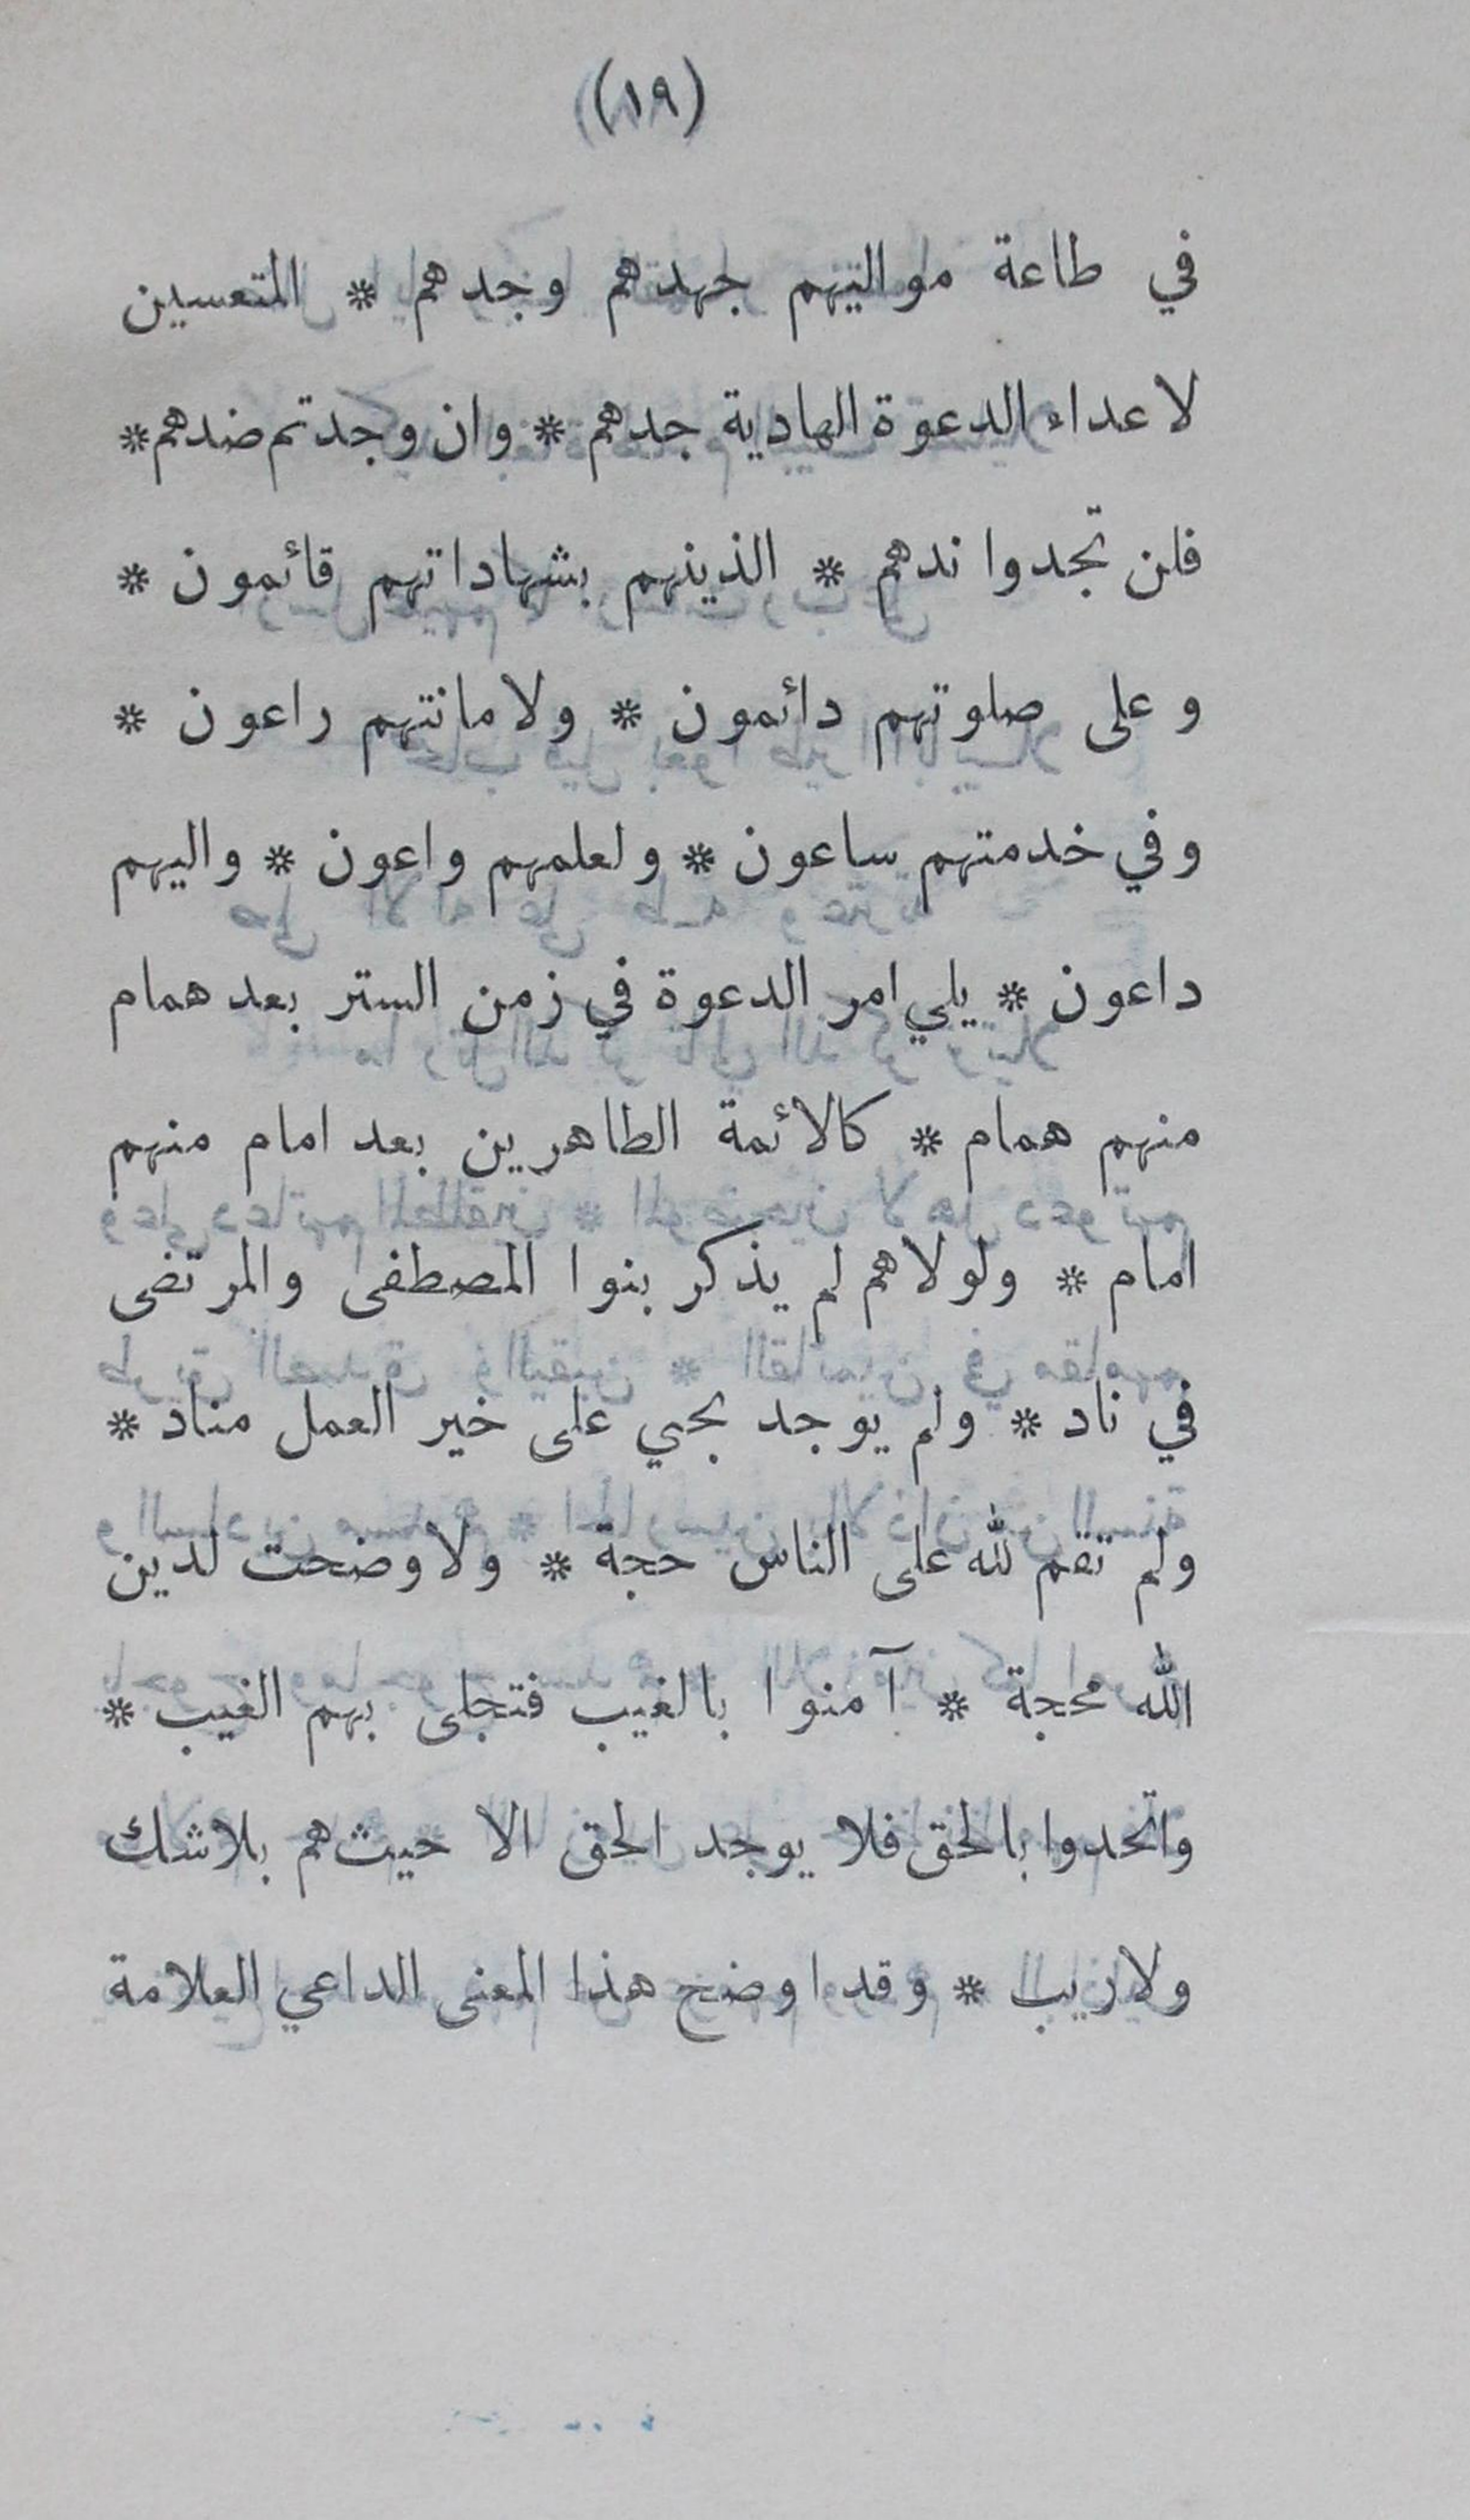 (١٩)
في طاعة مواليهم جهدهم وجدهم * المتعسين
لاعداء الدعوة الهادية جدهم * وان وجدتم ضدهم *
فلن تجدوا ندهم * الذينهم بشهاداتهم قائمون *
وعلى صلوتهم دائمون * ولامانتهم راعون *
وفي خدمتهم ساعون * ولعلمهم واعون * واليهم
داعون * يلي امر الدعوة في زمن الستر بعد همام
منهم همام * كالائمة الطاهرين بعد امام منهم
امام * ولولاهم لم يذكر بنوا المصطفى والمرتضى
في ناد * ولم يوجد بحي على خير العمل مناد *
ولم تقم لله على الناس حجة * ولا وضحت لدين
الله محجة * آمنوا بالغيب فتجلى بهم الغيب *
واتحدوا بالحق فلا يوجد الحق الا حيث هم بلاشك
ولاريب * وقد اوضح هذا المعنى الداعي العلامة